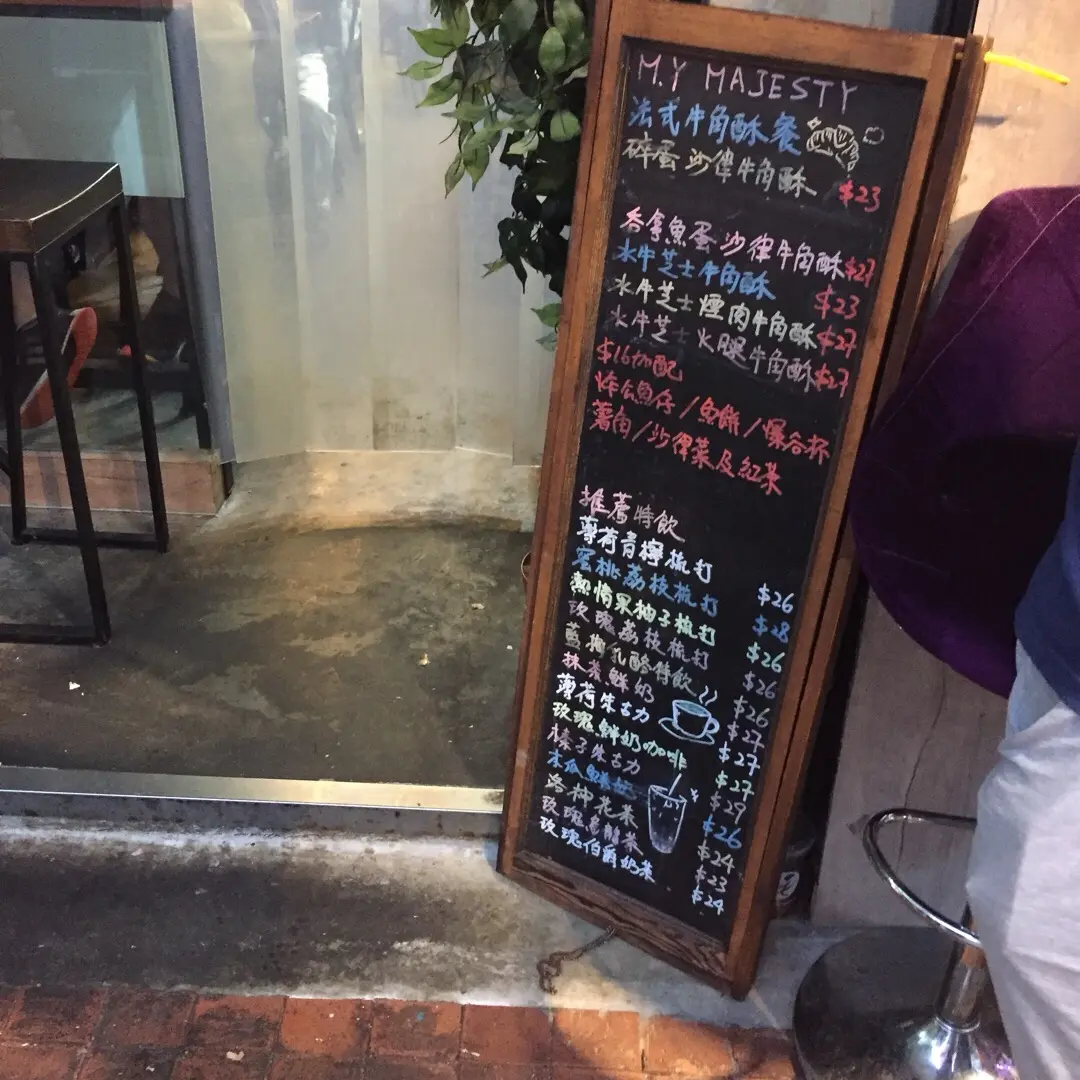 M.Y MAJESTY
法式牛角酥餐
碎蛋沙律牛角酥 $23
吞拿魚蛋沙律牛角酥 $27
水牛芝士牛角酥 $23
水牛芝士煙肉牛角酥 $27
水牛芝士火腿牛角酥 $27
$16加配
炸公魚仔/魚餅/爆谷杯
薯角/沙律菜及紅茶
推薦特飲
薄荷青檸梳打 $26
蜜桃荔枝梳打 $28
熱情果柚子梳打 $26
玫瑰荔枝梳打 $26
藍梅乳酪特飲 $26
抹茶鮮奶 $27
薄荷朱古力 $27
玫瑰鮮奶咖啡 $27
榛子朱古力 $29
木瓜鮮奶 $26
洛神花茶 $24
玫瑰烏龍茶 $23
玫瑰伯爵奶茶 $24